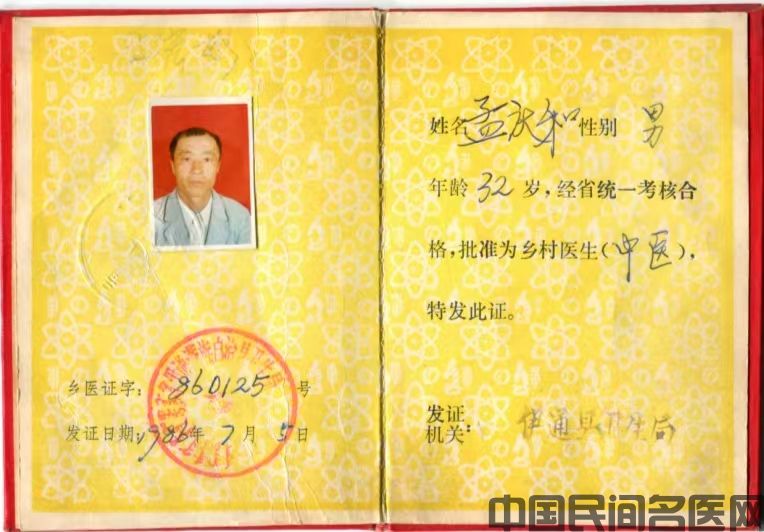 乡医证字：860125号
发证日期：1986年7月5日
姓名孟庆和性别 男
年龄32岁，经省统一考核合
格，批准为乡村医生（中医），
特发此证。
发证
机关：
伊通县卫生局
中国民间名医网